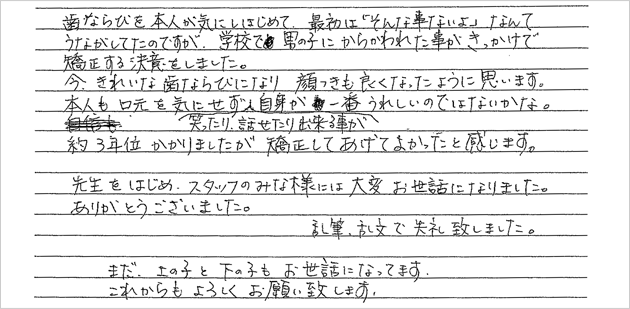 歯ならびを本人が気にしはじめて、最初は「そんな事ないよ」なんて
うながしてたのですが、学校で男の子にからかわれた事がきっかけで
矯正する決意をしました。
今、きれいな歯ならびになり 顔つきも良くなったように思います。
本人も口元を気にせず人自身が一番うれしいのではないかな。
自信も 笑ったり、話せたり出来る事が
約3年位かかりましたが 矯正してあげてよかったと感じます。
先生をはじめ、スタッフのみな様には大変お世話になりました。
ありがとうございました。
乱筆、乱文で失礼致しました。
まだ、上の子と下の子もお世話になってます。
これからもよろしくお願い致します。